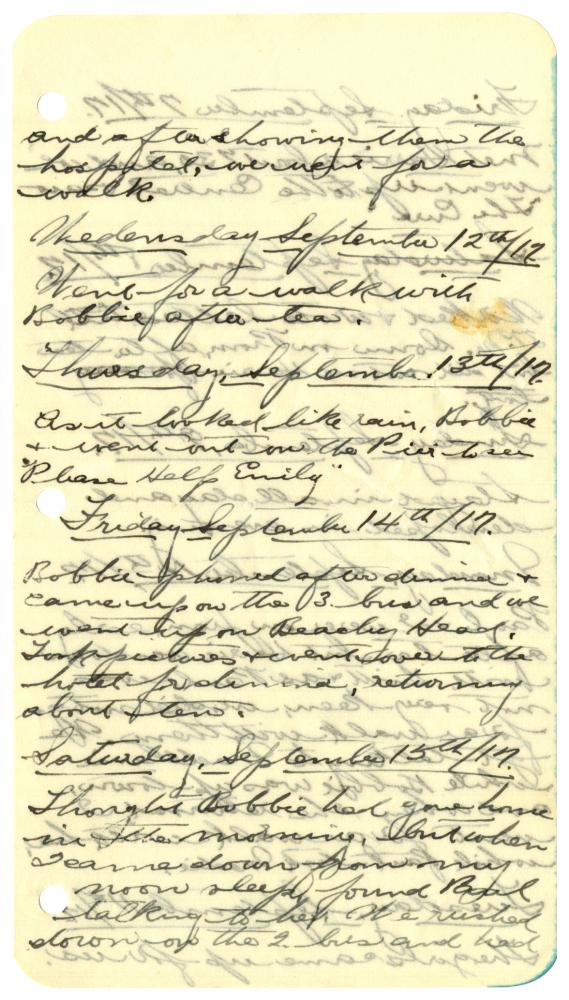 and after showing them the
hospital, we went for a
walk.
Wedensday September 12th/17
Went for a walk with
Bobbie after tea.
Thursday, September 13th/17.
As it looked like rain, Bobbie
+ I went out on the Pier to see
"Please Help Emily"
Friday September 14th/17.
Bobbie phoned after dinner +
came up on the 3 bus and we
went up on Beachy Head.
Took pictures + went over to the
hotel for dinner, returning
about ten.
Saturday, September 15th/17.
Thought Bobbie had gone home
in the morning, but when
I came down from my
noon sleep, found Basil
talking to her. We rushed
down on the 2 bus and had